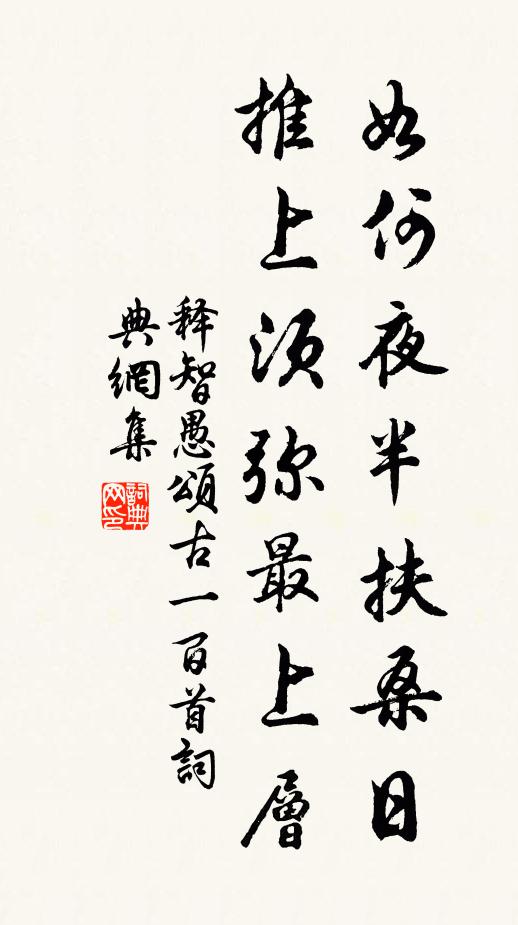 如何夜半扶桑日
推上须弥最上層
释智愚頌古一百首詞
典網集
詞典网印